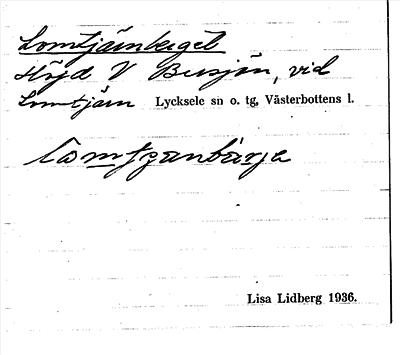 Lomtjärnberget
Höjd V Busjön, vid
Lomtjärn Lycksele sn o. tg, Västerbottens l.
Lisa Lidberg 1936.